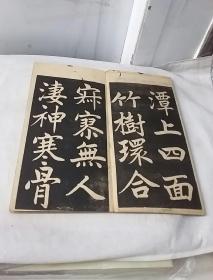 潭上四面
竹樹環合
寂寥無人
淒神寒骨